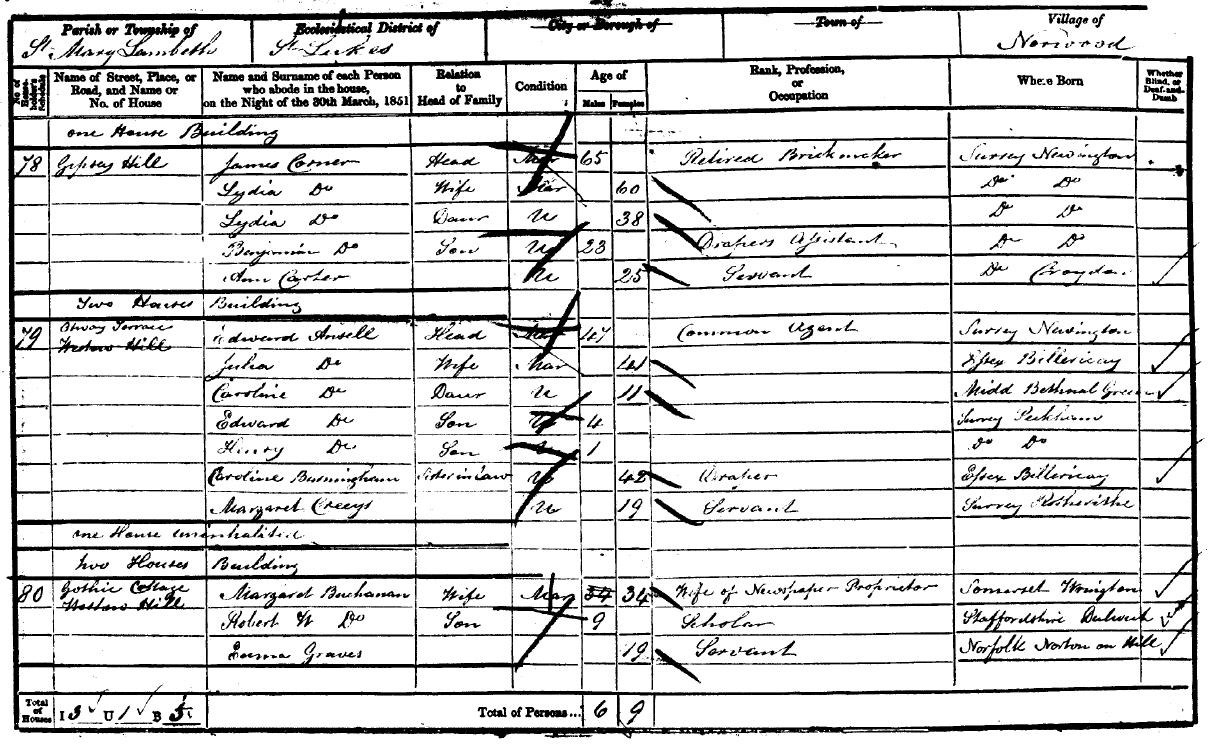 Parish or Township of Ecclesiastical District of City or Borough of Town of Village of
St Mary Lambeth St Lukes Norwood
No of House-holder's Schedule Name of Street, Place, or Road, and Name or No. of House Name and Surname of each Person who abode in the house, on the Night of the 30th March, 1851 Relation to Head of Family Condition Age of Males Females Rank, Profession, or Occupation Where Born Whether Blind, or Deaf-and-Dumb
one House Building
78 Gipsey Hill James Corner Head Mar 65 Retired Brickmaker Surrey Newington
Lydia Do Wife Mar 60 Do Do
Lydia Do Daur U 38 Do Do
Benjimin Do Son U 23 Drapers Assistant Do Do
Ann Carter U 25 Servant Do Croydon
Two Houses Building
79 Otway Terrace Westow Hill Edward Ansell Head Mar 47 Common Agent Surrey Newington
Julia Do Wife Mar 41 Essex Billericay
Caroline Do Daur U 11 Midd Bethnal Green
Edward Do Son U 4 Surrey Peckham
Henry Do Son U 1 Do Do
Caroline Burmingham Sister in Law U 42 Draper Essex Billericay
Margaret Creeys U 19 Servant Surrey Rotherithe
one House uninhabited
two Houses Building
80 Gothic Cottage Westow Hill Margaret Buchanan Wife Mar 34 34 Wife of Newspaper Proprietor Somerset Wrington
Robert W Do Son 9 Scholar Staffordshire
Emma Graves 19 Servant Norfolk Norton on Hill
Total of Houses I 3 U 1 B 5 Total of Persons... 6 9